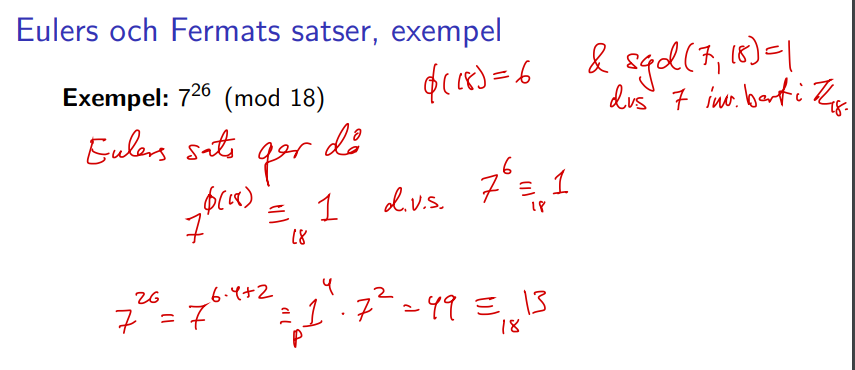 Eulers och Fermats satser, exempel
Exempel: 7^26 (mod 18)
ϕ(18) = 6
& sgd(7, 18) = 1
dvs 7 inv. bart i ℤ_18.
Eulers sats ger då
7^ϕ(18) ≡_18 1 d.v.s. 7^6 ≡_18 1
7^26 = 7^(6·4+2) ≡_p 1^4 · 7^2 = 49 ≡_18 13